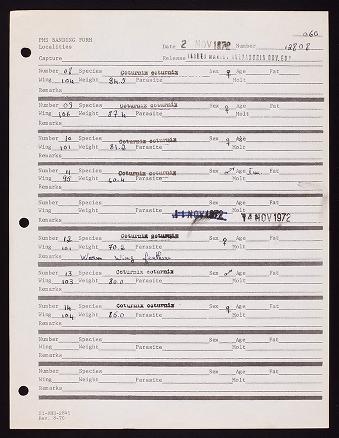 060
FMS BANDING FORM
Localities Date 2 NOV 1972 Number 13808
Capture Release
Number 08 Species Coturnix coturnix Sex ♀ Age Fat
Wing 104 Weight 84.5 Parasite Molt
Remarks
Number 09 Species Coturnix coturnix Sex ♀ Age Fat
Wing 106 Weight 87.4 Parasite Molt
Remarks
Number 10 Species Coturnix coturnix Sex ♀ Age Fat
Wing 101 Weight 81.2 Parasite Molt
Remarks
Number 11 Species Coturnix coturnix Sex ♂ Age Im. Fat
Wing 98 Weight 60.4 Parasite Molt
Remarks
Number Species Sex Age Fat
Wing Weight Parasite 11 NOV 1972 14 NOV 1972
Remarks
Number 12 Species Coturnix coturnix Sex ♀ Age Fat
Wing 101 Weight 70.2 Parasite Molt
Remarks Worn wing feathers
Number 13 Species Coturnix coturnix Sex ♂ Age Fat
Wing 103 Weight 80.0 Parasite Molt
Remarks
Number 14 Species Coturnix coturnix Sex ♀ Age Fat
Wing 104 Weight 86.0 Parasite Molt
Remarks
Number Species Sex Age Fat
Wing Weight Parasite Molt
Remarks
Number Species Sex Age Fat
Wing Weight Parasite Molt
Remarks
Rev. 8-70